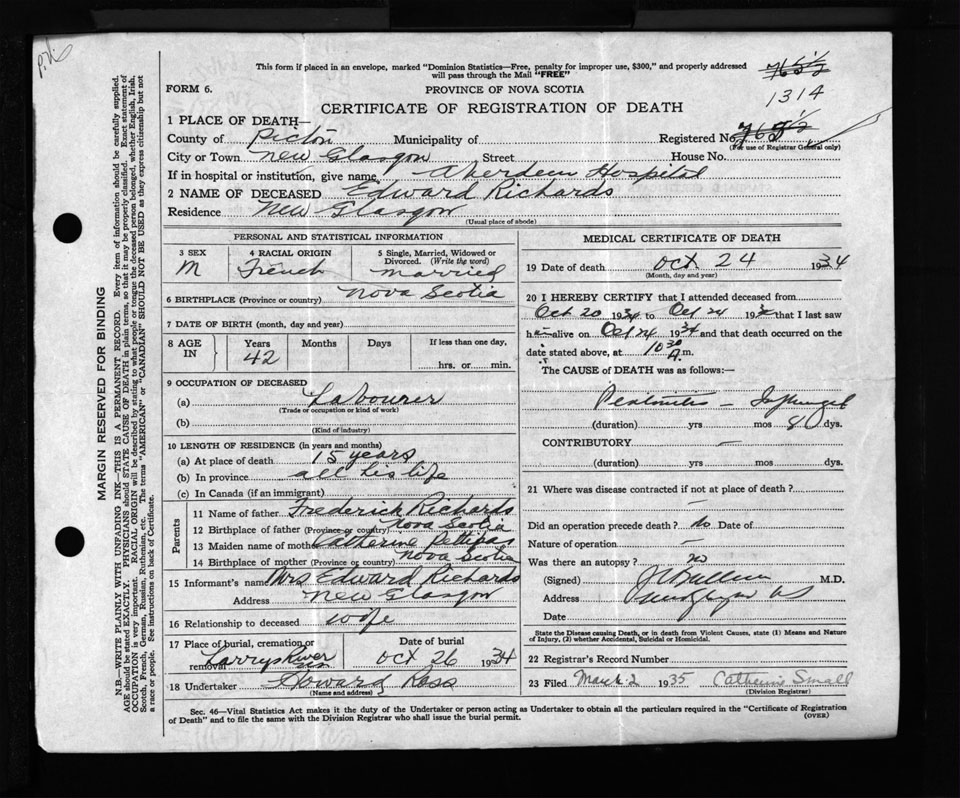 This form if placed in an envelope, marked "Dominion Statistics—Free, penalty for improper use, $300," and properly addressed
will pass through the Mail "FREE"
FORM 6.
PROVINCE OF NOVA SCOTIA
1314
CERTIFICATE OF REGISTRATION OF DEATH
1 PLACE OF DEATH—
County of Pictou Municipality of Registered No.
(For use of Registrar General only)
City or Town New Glasgow Street House No.
If in hospital or institution, give name Aberdeen Hospital
2 NAME OF DECEASED Edward Richards
Residence New Glasgow
(Usual place of abode)
PERSONAL AND STATISTICAL INFORMATION
3 SEX 4 RACIAL ORIGIN 5 Single, Married, Widowed or
Divorced. (Write the word)
M French married
6 BIRTHPLACE (Province or country) Nova Scotia
7 DATE OF BIRTH (month, day and year)
8 AGE IN Years Months Days If less than one day,
42 hrs. or min.
9 OCCUPATION OF DECEASED
(a) Labourer
(Trade or occupation or kind of work)
(b)
(Kind of industry)
10 LENGTH OF RESIDENCE (in years and months)
(a) At place of death 15 years
(b) In province all his life
(c) In Canada (if an immigrant)
Parents
11 Name of father Frederick Richards
12 Birthplace of father (Province or country) Nova Scotia
13 Maiden name of mother Catherine Pettipas
14 Birthplace of mother (Province or country) Nova Scotia
15 Informant's name Mrs Edward Richards
Address New Glasgow
16 Relationship to deceased wife
17 Place of burial, cremation or removal Larrys River Date of burial
Oct 26 1934
18 Undertaker Howard Ross
(Name and address)
MEDICAL CERTIFICATE OF DEATH
19 Date of death Oct 24 1934
(Month, day and year)
20 I HEREBY CERTIFY that I attended deceased from
Oct 20 1934 to Oct 24 193 that I last saw
h alive on Oct 24 1934 and that death occurred on the
date stated above, at 10 30 A.m.
The CAUSE of DEATH was as follows:—
(duration) yrs mos 8 dys.
CONTRIBUTORY —
(duration) yrs mos dys.
21 Where was disease contracted if not at place of death?
—
Did an operation precede death? No Date of
Nature of operation —
Was there an autopsy? no
(Signed) M.D.
Address
Date
State the Disease causing Death, or in death from Violent Causes, state (1) Means and Nature
of Injury, (2) whether Accidental, Suicidal or Homicidal.
22 Registrar's Record Number
23 Filed March 2 1935 Catherine Small
(Division Registrar)
Sec. 46—Vital Statistics Act makes it the duty of the Undertaker or person acting as Undertaker to obtain all the particulars required in the "Certificate of Registration
of Death" and to file the same with the Division Registrar who shall issue the burial permit.
(OVER)
MARGIN RESERVED FOR BINDING
N.B.—WRITE PLAINLY WITH UNFADING INK—THIS IS A PERMANENT RECORD. Every item of information should be carefully supplied.
AGE should be stated EXACTLY. PHYSICIANS should STATE CAUSE OF DEATH in plain terms, so that it may be properly classified. Exact statement of
OCCUPATION is very important. RACIAL ORIGIN will be described by stating to what people or tongue the deceased person belonged, whether English, Irish,
Scotch, French, German, Russian, Ruthenian, etc. The terms "AMERICAN" or "CANADIAN" SHOULD NOT BE USED as they express citizenship but not
a race or people. See instructions on back of Certificate.